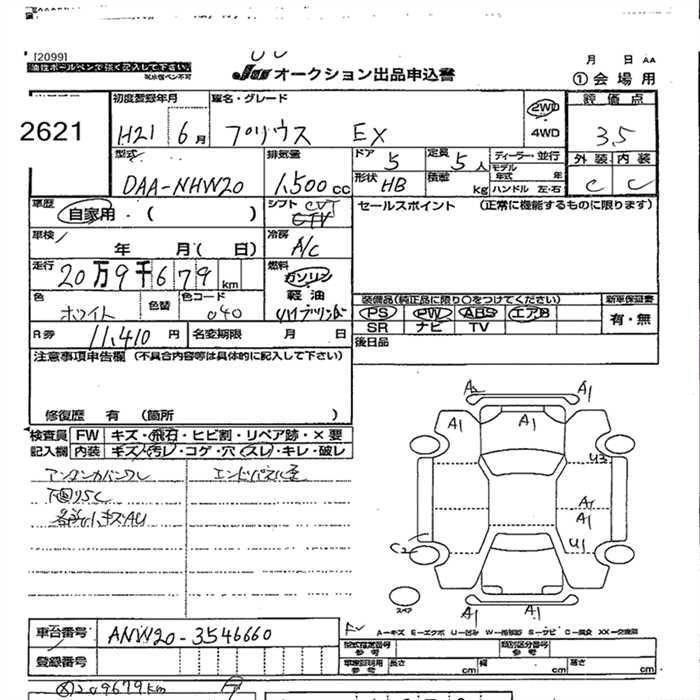 [2099]
油性ボールペンで強く記入して下さい。
JU オークション出品申込書
月 日 AA
①会場用
2621
初度登録年月
車名・グレード
2WD
4WD
評価点
H21 6月
プリウス EX
3.5
型式
排気量
ドア 5
定員 5人
ディーラー・並行
外装 内装
DAA-NHW20
1,500cc
形状 HB
積載 kg
モデル年式 年
ハンドル 左・右
C C
車歴
自家用・( )
シフト CVT
セールスポイント (正常に機能するものに限ります)
車検
年 月( 日)
冷房
A/C
走行
20万9千679km
燃料
ガソリン
軽油
色
ホワイト
色替
色コード
040
装備品(純正品に限り○をつけてください)
新車保証書
PS PW ABS エアB
有・無
SR ナビ TV
R券
11,410円
名変期限 月 日
後日品
注意事項申告欄 (不具合内容等は具体的に記入して下さい)
修復歴 有 (箇所 )
検査員 FW キズ・飛石・ヒビ割・リペア跡・×要
記入欄 内装 キズ・汚レ・コゲ・穴・スレ・キレ・破レ
アンダーカバーワレ
下廻りSC
A2 A1
A1 A1
U3
A1
A1
C2 U1
A1
A1 A1
スペア
A-キズ E-エクボ U-凹み W-補修跡 S-サビ C-腐食 XX-交換済
車台番号
ANW20-3546660
登録番号
型式指定番号 参考
類別区分番号 参考
長さ cm 幅 cm 高さ cm
209679km